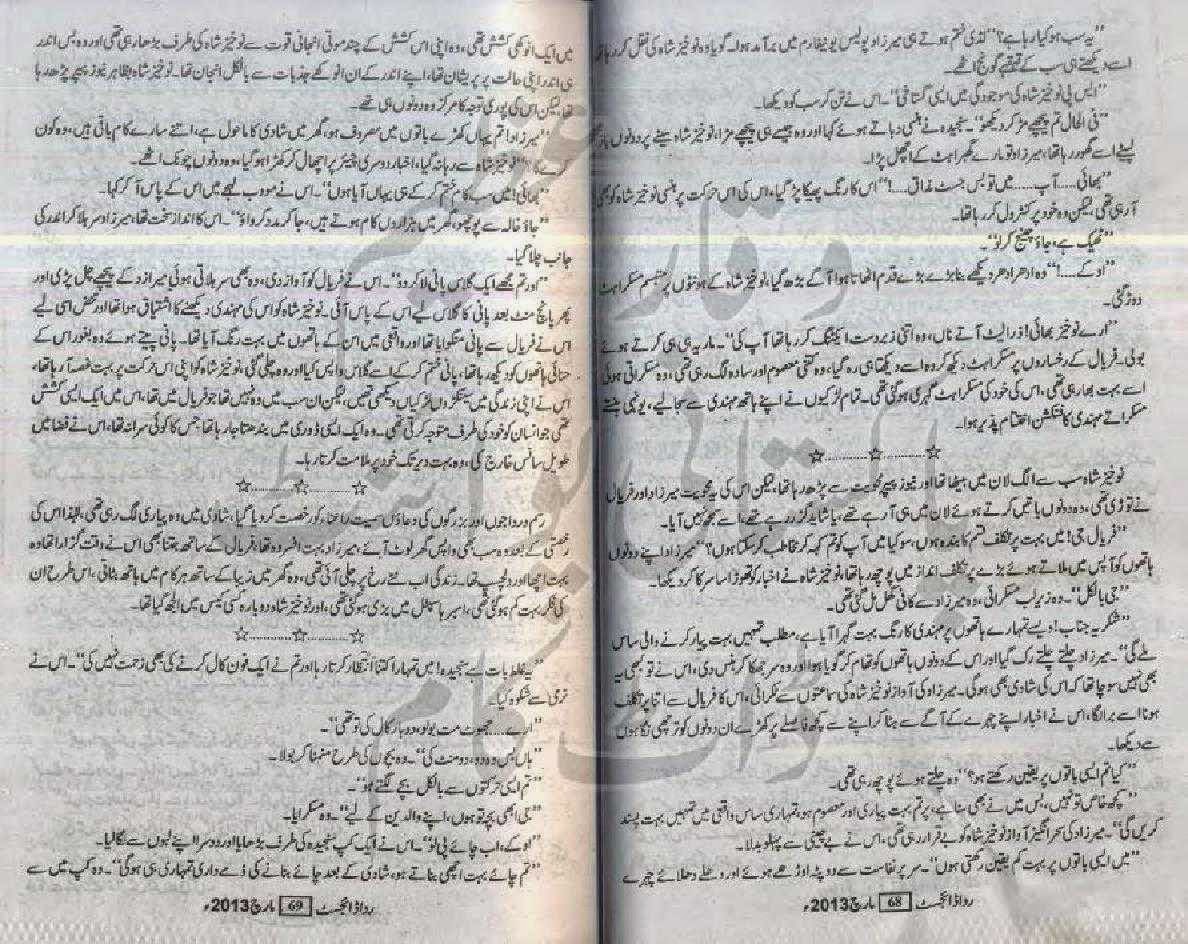 "یہ سب ہو کیا رہا ہے؟" لڈی ختم ہوتے ہی میرزاد پولیس یونیفارم میں برآمد ہوا۔ گویا وہ نوخیز شاہ کی نقل کر رہا تھا
اسے دیکھتے ہی سب کے قہقہے گونج اٹھے۔
"ایس پی نوخیز شاہ کی موجودگی میں ایسی گستاخی"۔ اس نے تن کر سب کو دیکھا۔
"فی الحال تم پیچھے مڑ کر دیکھو"۔ سنجیدہ نے ہنسی دباتے ہوئے کہا اور وہ جیسے ہی پیچھے مڑا، نوخیز شاہ سینے پر دونوں بازو
لپیٹے اسے گھور رہا تھا، میرزاد تو مارے گھبراہٹ کے اچھل پڑا۔
"بھائی..... آپ ..... میں تو بس جسٹ مذاق.....!" اس کا رنگ پھیکا پڑ گیا، اس کی اس حرکت پر ہنسی نوخیز شاہ کو بھی
آ رہی تھی، لیکن وہ خود پر کنٹرول کر رہا تھا۔
"ٹھیک ہے، جاؤ چینج کر لو"۔
"اوکے.....!" وہ ادھر ادھر دیکھے بنا بڑے بڑے قدم اٹھاتا ہوا آگے بڑھ گیا، نوخیز شاہ کے ہونٹوں پر مبہم مسکراہٹ
دوڑ گئی۔
"ارے نوخیز بھائی! ذرا لیٹ آتے ناں، وہ اتنی زبردست ایکٹنگ کر رہا تھا آپ کی"۔ ماریہ ہی ہی کرتے ہوئے
بولی۔ فریال کے رخساروں پر مسکراہٹ دیکھ کر وہ اسے دیکھتا ہی رہ گیا، وہ کتنی معصوم اور سادہ لگ رہی تھی، وہ مسکراتی ہوئی
اسے بہت بھا رہی تھی، اس کی خود کی مسکراہٹ گہری ہو گئی تھی۔ تمام لڑکیوں نے اپنے ہاتھ مہندی سے سجا لیے، یونہی ہنستے
مسکراتے مہندی کا فنکشن اختتام پذیر ہوا۔
☆............☆............☆
نوخیز شاہ سب سے الگ لان میں بیٹھا تھا اور نیوز پیپر محویت سے پڑھ رہا تھا، لیکن اس کی یہ محویت میرزاد اور فریال
نے توڑی تھی، وہ دونوں باتیں کرتے ہوئے لان میں ہی آ رہے تھے، یا شاید گزر رہے تھے، اسے سمجھ نہیں آیا۔
"فریال جی! میں بہت پر تکلف قسم کا بندہ ہوں، سو کیا میں آپ کو تم کہہ کر مخاطب کر سکتا ہوں؟" میرزاد اپنے دونوں
ہاتھوں کو آپس میں ملاتے ہوئے بڑے پر تکلف انداز میں پوچھ رہا تھا، نوخیز شاہ نے اخبار کو تھوڑا سا سرکا کر دیکھا۔
"جی بالکل"۔ وہ زیرلب مسکرائی، وہ میرزاد سے کافی گھل مل گئی تھی۔
"شکریہ جناب! ویسے تمہارے ہاتھوں پر مہندی کا رنگ بہت گہرا آیا ہے، مطلب تمہیں بہت پیار کرنے والی ساس
ملے گی"۔ میرزاد چلتے چلتے رک گیا اور اس کے دونوں ہاتھوں کو تھام کر گویا ہوا اور وہ سر جھکا کر ہنس دی، اس نے تو کبھی یہ
بھی نہیں سوچا تھا کہ اس کی شادی بھی ہوگی۔ میرزاد کی آواز نوخیز شاہ کی سماعتوں سے ٹکرائی، اس کا فریال سے اتنا پر تکلف
ہونا اسے برا لگا، اس نے اخبار اپنے چہرے کے آگے سے ہٹا کر اپنے سے کچھ فاصلے پر کھڑے ان دونوں کو ترچھی نگاہوں
سے دیکھا۔
"کیا تم ایسی باتوں پر یقین رکھتے ہو؟" وہ چلتے ہوئے پوچھ رہی تھی۔
"کچھ خاص تو نہیں، بس میں نے بھی سنا ہے، پر تم بہت پیاری اور معصوم ہو، تمہاری ساس واقعی میں تمہیں بہت پسند
کریں گی"۔ میرزاد کی سحر انگیز آواز نوخیز شاہ کو بے قرار رہی تھی، اس نے بے چینی سے پہلو بدلا۔
"میں ایسی باتوں پر بہت کم یقین رکھتی ہوں"۔ سر پر نفاست سے دوپٹہ اوڑھے ہوئے اور دھلے دھلائے چہرے
ردا ڈائجسٹ 68 مارچ 2013ء
میں ایک انوکھی کشش تھی، وہ اپنی اس کشش کے چند موتی انجانی قوت سے نوخیز شاہ کی طرف بڑھا رہی تھی اور وہ بس اندر
ہی اندر اپنی حالت پر پریشان تھا، اپنے اندر کے ان انوکھے جذبات سے بالکل انجان تھا۔ نوخیز شاہ بظاہر نیوز پیپر پڑھ رہا
تھا لیکن اس کی پوری توجہ کا مرکز وہ دونوں ہی تھے۔
"میرزاد! تم یہاں کھڑے باتوں میں مصروف ہو، گھر میں شادی کا ماحول ہے، اتنے سارے کام باقی ہیں، وہ کون
کرے گا؟" نوخیز شاہ سے رہا نہ گیا، اخبار دوسری چیئر پر اچھال کر کھڑا ہو گیا، وہ دونوں چونک اٹھے۔
"بھائی! میں سب کام ختم کر کے ہی یہاں آیا ہوں"۔ اس نے مودب لہجے میں اس کے پاس آ کر کہا۔
"جاؤ خالہ سے پوچھو، گھر میں ہزاروں کام ہوتے ہیں، جا کر مدد کرواؤ"۔ اس کا انداز سخت تھا، میرزاد سر ہلا کر اندر کی
جانب چلا گیا۔
"اور تم مجھے ایک گلاس پانی لا کر دو"۔ اس نے فریال کو آواز دی، وہ بھی سر ہلاتی ہوئی میرزاد کے پیچھے چل پڑی اور
پھر پانچ منٹ بعد پانی کا گلاس لیے اس کے پاس آئی۔ نوخیز شاہ کو اس کی مہندی دیکھنے کا اشتیاق ہوا تھا اور محض اسی لیے
اس نے فریال سے پانی منگوایا تھا اور واقعی میں اس کے ہاتھوں میں بہت رنگ آیا تھا۔ پانی پیتے ہوئے وہ بغور اس کے
حنائی ہاتھوں کو دیکھ رہا تھا، پانی ختم کر کے اسے گلاس واپس کیا اور وہ چلی گئی، نوخیز شاہ کو اپنی اس حرکت پر بہت غصہ آ رہا تھا،
اس نے اپنی زندگی میں سینکڑوں لڑکیاں دیکھی تھیں، لیکن ان سب میں وہ نہیں تھا جو فریال میں تھا، اس میں ایک ایسی کشش
تھی جو انسان کو خود کی طرف متوجہ کرتی تھی۔ وہ ایک ایسی ڈوری میں بندھتا جا رہا تھا، جس کا کوئی سرا نہ تھا، اس نے فضا میں
طویل سانس خارج کی، وہ بہت دیر تک خود پر ملامت کرتا رہا۔
☆............☆............☆
رسم و رواجوں اور بزرگوں کی دعاؤں سمیت راعنا کو رخصت کر دیا گیا، شادی میں وہ پیاری لگ رہی تھی، لہٰذا اس کی
رخصتی کے بعد وہ سب بھی واپس گھر لوٹ آئے، میرزاد بہت افسردہ تھا، فریال کے ساتھ جتنا بھی اس نے وقت گزارا تھا وہ
بہت اچھا اور دلچسپ تھا۔ زندگی اب نئے رخ پر چلی آئی تھی، وہ گھر میں زیبا کے ساتھ ہر کام میں ہاتھ بٹاتی، اس طرح ان
کی فکر بہت کم ہو گئی تھی، امبر ہاسپٹل میں بزی ہو گئی تھی، اور نوخیز شاہ دوبارہ کسی کیس میں الجھ گیا تھا۔
☆............☆............☆
"یہ غلط بات ہے سنجیدہ! میں تمہارا کتنا انتظار کرتا رہا اور تم نے ایک فون کال کرنے کی بھی زحمت نہیں کی"۔ اس نے
نرمی سے شکوہ کیا۔
"ارے..... جھوٹ مت بولو، دو بار کال کی تو تھی"۔
"ہاں بس وہ دو، دو منٹ کی"۔ وہ بچوں کی طرح منمنا کر بولا۔
"تم ایسی حرکتوں سے بالکل بچے لگتے ہو"۔
"جی ابھی بچہ تو ہوں، اپنے والدین کے لیے"۔ وہ مسکرایا۔
"اوکے، اب چائے پی لو"۔ اس نے ایک کپ سنجیدہ کی طرف بڑھایا اور دوسرا اپنے لبوں سے لگا لیا۔
"تم چائے بہت اچھی بناتے ہو، شادی کے بعد چائے بنانے کی ذمے داری تمہاری ہی ہوگی"۔ وہ کپ میں سے
ردا ڈائجسٹ 69 مارچ 2013ء